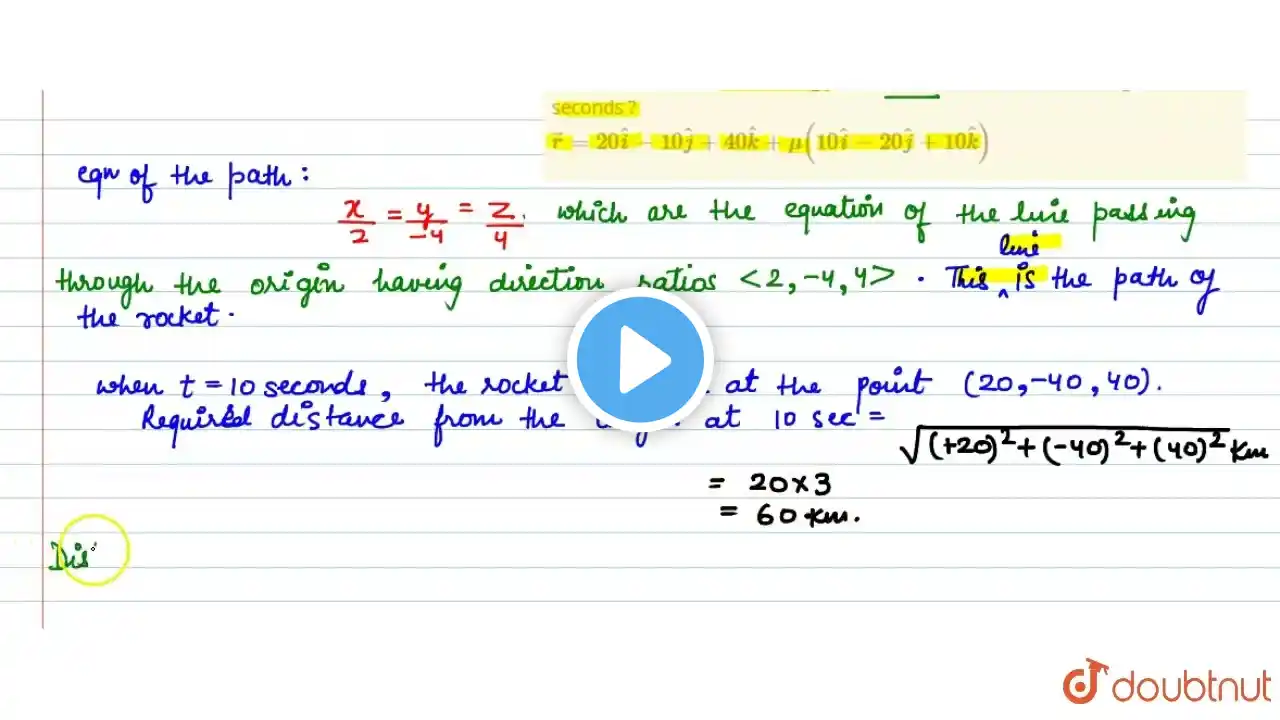 seconds?
r⃗ = 20î − 10ĵ + 40k̂ + μ(10î − 20ĵ + 10k̂)
eqn of the path:
x/2 = y/-4 = z/4. which are the equation of the line passing
line
through the origin having direction ratios <2,-4,4> . This ^ is the path of
the rocket.
when t = 10 seconds, the rocket at the point (20,-40,40).
Required distance from the at 10 sec =
√(+20)²+(-40)²+(40)² km
= 20×3
= 60 km.
Dis
doubtnut